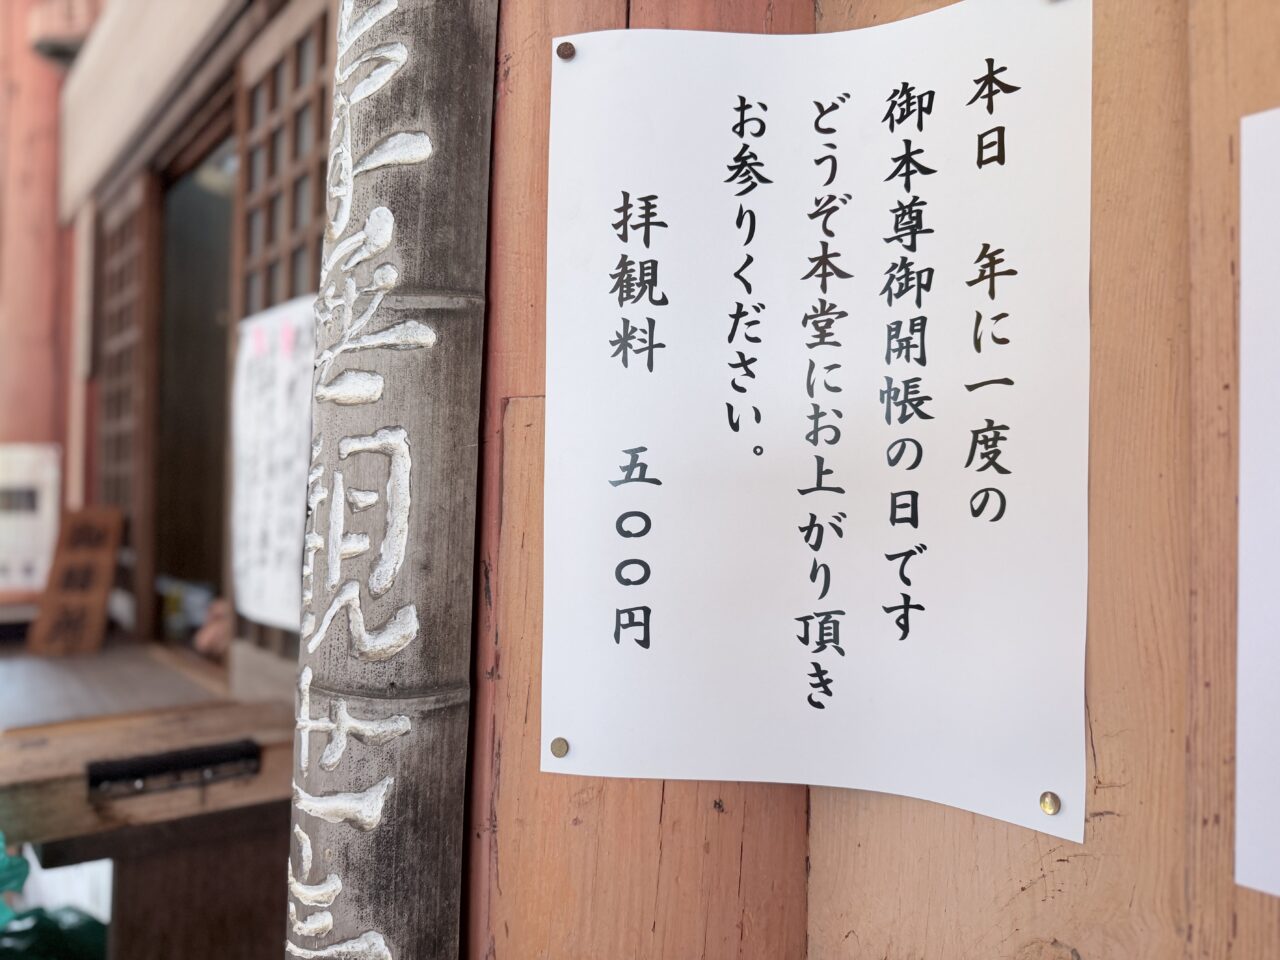 本日 年に一度の
御本尊御開帳の日です
どうぞ本堂にお上がり頂き
お参りください。
拝観料 五〇〇円